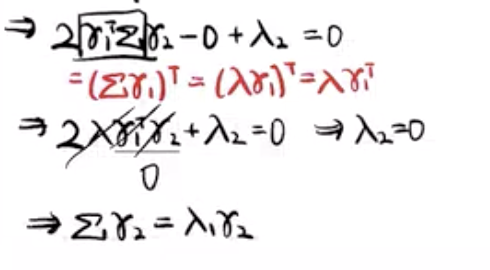 ⇒ 2γ₁ᵀΣγ₂ − 0 + λ₂ = 0
= (Σγ₁)ᵀ = (λγ₁)ᵀ = λγ₁ᵀ
⇒ 2λγ₁ᵀγ₂ + λ₂ = 0 ⇒ λ₂ = 0
0
⇒ Σγ₂ = λ₁γ₂